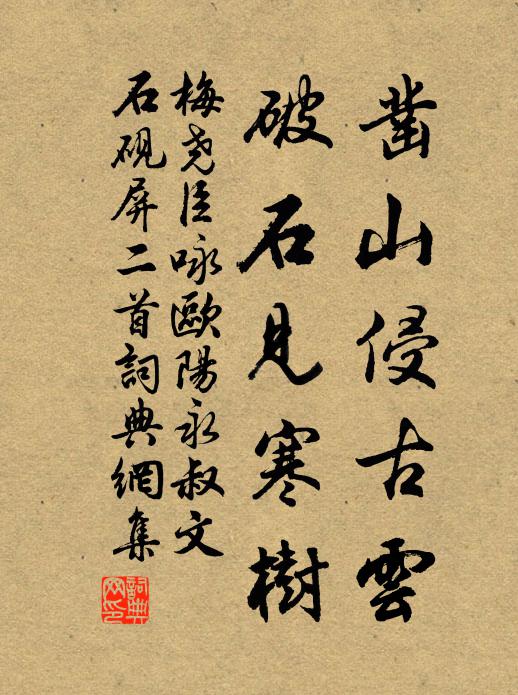 鑿山侵古雲
破石見寒樹
梅堯臣咏歐陽永叔文
石硯屏二首詞典網集
詞典
网印